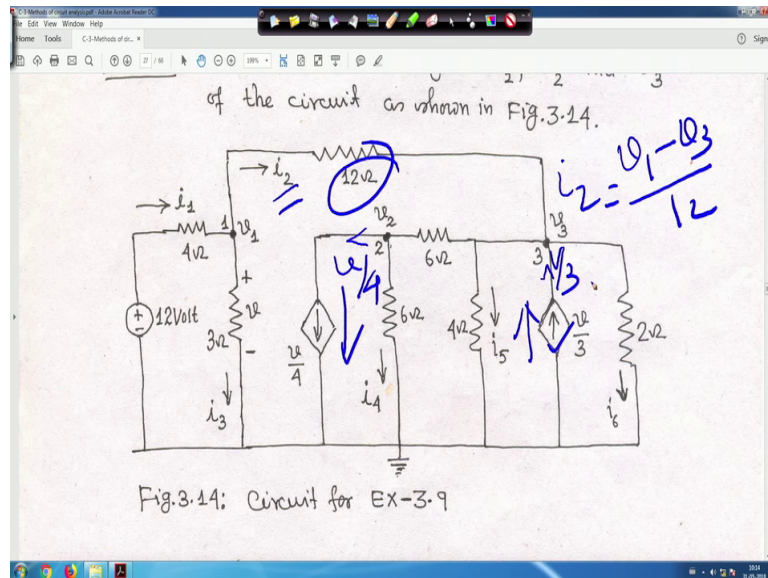 C-3-Methods of circuit analysis.pdf - Adobe Acrobat Reader DC
File Edit View Window Help
Home Tools C-3-Methods of cir... × Sign
27 / 66 199%
2, 2 3
of the circuit as shown in Fig.3.14.
i2 = v1-v3 / 12
i2 12Ω
i1 v2 v3
4Ω 1 v1 2 6Ω 3
v/4 v/3
+
12Volt 3Ω v 6Ω 4Ω i5 v/3 2Ω
-
v/4
i3 i4 i6
Fig.3.14: Circuit for EX-3.9
10:14
31-05-2018